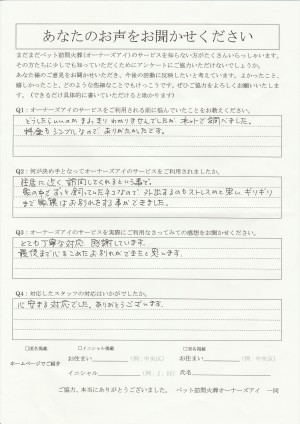 あなたのお声をお聞かせください
まだまだペット訪問火葬（オーナーズアイ）のサービスを知らない方がたくさんいらっしゃいます。
その方たちに少しでも知っていただくためにアンケートにご協力いただけないでしょうか。
あなた様のご意見をお聞かせいただき、今後の活動に反映したいと考えています。よかったこと、
嬉しかったこと、どのような些細なことでもけっこうです。ぜひ協力をよろしくお願いいたしま
す。（できるだけ具体的に書いていただけると助かります）
Q1：オーナーズアイのサービスをご利用される前に悩んでいたことをお教えください。
どうしたらいいのか まよい わかりませんでしたが、ネットで調べました。
料金もシンプルなので ありがたかったです。
Q2：何が決め手となってオーナーズアイのサービスを利用されましたか。
住居に近く 訪問してくれるという事で。
家の中でずっと飼っていたネコなので 外出するのもストレスかと思い、ギリギリ
まで お別れをする事ができました。
Q3：オーナーズアイのサービスを実際にご利用されなさってみての感想をお聞かせください。
とても丁寧な対応、感謝しています。
最後まで心をこめたお別れができたと思います。
Q4：対応したスタッフの対応はいかがでしたか。
心安まる対応でした。ありがとうございます。
□匿名掲載 □イニシャル掲載 □実名掲載
ホームページでご紹介
お住まい （例：中央区） お住まい （例：中央区）
イニシャル （例：Ｉ．Ｈ） 氏名
ご協力、本当にありがとうございました。 ペット訪問火葬オーナーズアイ 一同